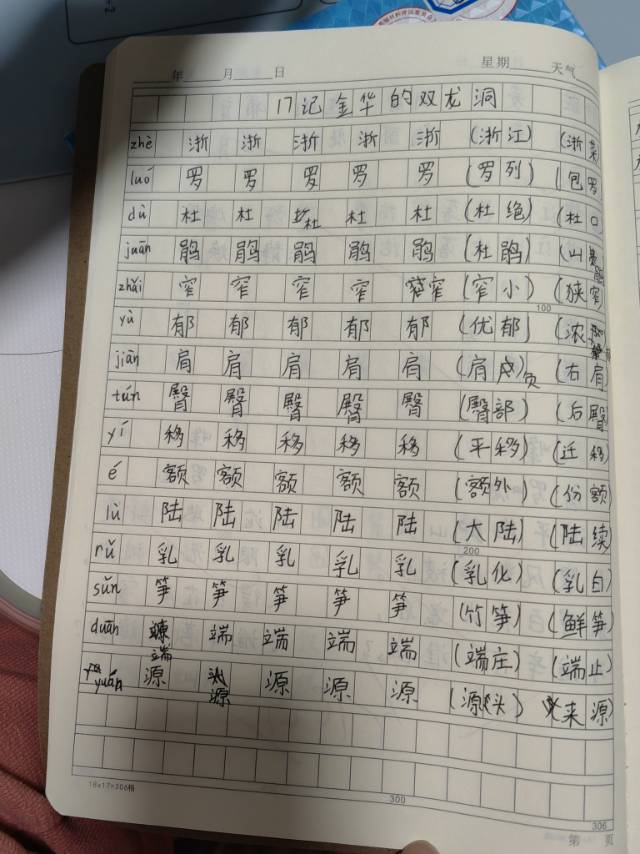 年 月 日 星期 天气
17记金华的双龙洞
zhè 浙 浙 浙 浙 浙 (浙江) (浙菜
luó 罗 罗 罗 罗 罗 (罗列) (包罗
dù 杜 杜 杜 杜 杜 (杜绝) (杜口
juān 鹃 鹃 鹃 鹃 鹃 (杜鹃) (山
zhǎi 窄 窄 窄 窄 窄 (窄小) (狭窄
100
yù 郁 郁 郁 郁 郁 (优郁) (浓
jiān 肩 肩 肩 肩 肩 (肩负) (右肩
tún 臀 臀 臀 臀 臀 (臀部) (后臀
yí 移 移 移 移 移 (平移) (迁移
é 额 额 额 额 额 (额外) (份额
lù 陆 陆 陆 陆 陆 (大陆) (陆续
200
nǔ 乳 乳 乳 乳 乳 (乳化) (乳白
sǔn 笋 笋 笋 笋 笋 (竹笋) (鲜笋
duān 端 端 端 端 端 (端庄) (端止
yuán 源 源 源 源 源 (源头) 来源
18x17=306格
300
306
第 页